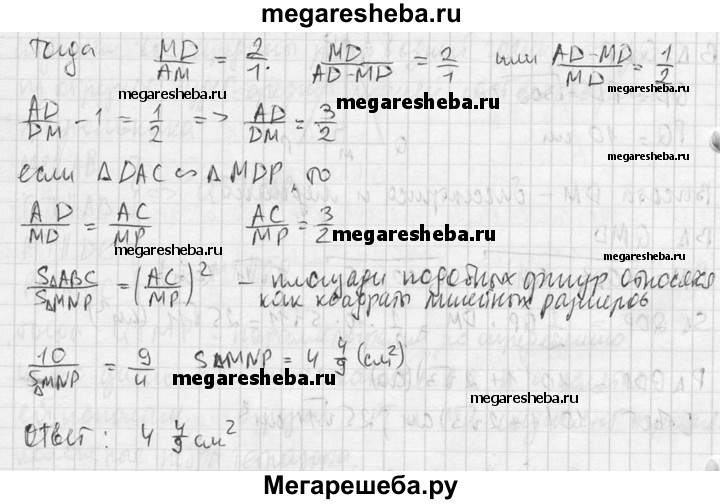 megaresheba.ru
Тогда MD/AM = 2/1. MD/(AD-MD) = 2/1 или (AD-MD)/MD = 1/2
megaresheba.ru
megaresheba.ru
megaresheba.ru
AD/DM - 1 = 1/2 => AD/DM = 3/2
если Δ DAC ∽ Δ MDP, то
AD/MD = AC/MP AC/MP = 3/2
megaresheba.ru
megaresheba.ru
megaresheba.ru
SΔABC/SΔMNP = (AC/MP)² – площади подобных фигур относятся
как квадраты линейных размеров
10/SΔMNP = 9/4 SΔMNP = 4 4/9 (см²)
megaresheba.ru
megaresheba.ru
megaresheba.ru
Ответ: 4 4/9 см²
Мегарешеба.ру